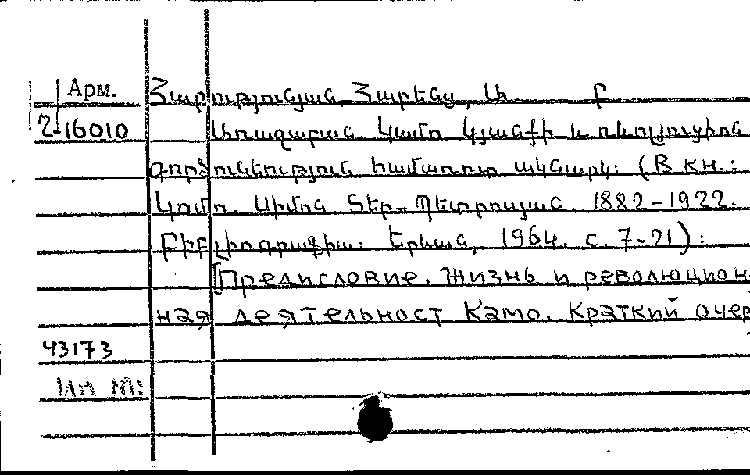 Арм.
Հարությունյան Հարենց, Ա
2-16010 Առաջաբան. Կամո Կյանքի և ռևոլյուցիոն
գործունեություն համառոտ ակնարկ: (В кн.:
Կամո. Սիմոն Տեր-Պետրոսյան 1882-1922.
Բիբլիոգրաֆիա. Երևան, 1964. с. 7-21):
[Предисловие. Жизнь и революцион-
ная деятельност Камо. Краткий очер
43173